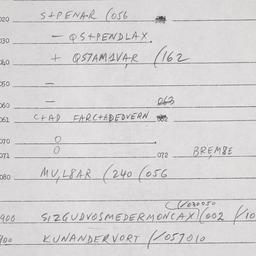 020 S+PENAR (056
030 – QS+PENDLAX
040 + QS7AM1VAR (162
050 –
060 – 063
061 C+AD EARC+ADEDVERN
070 0
071 0 072 BREMBE
080 MV,L8AR (240 (056
(/030050
900 SIZGUDVOSMEDERMONCAX) (002 (/10
900 KUNANDERVORT (/057010